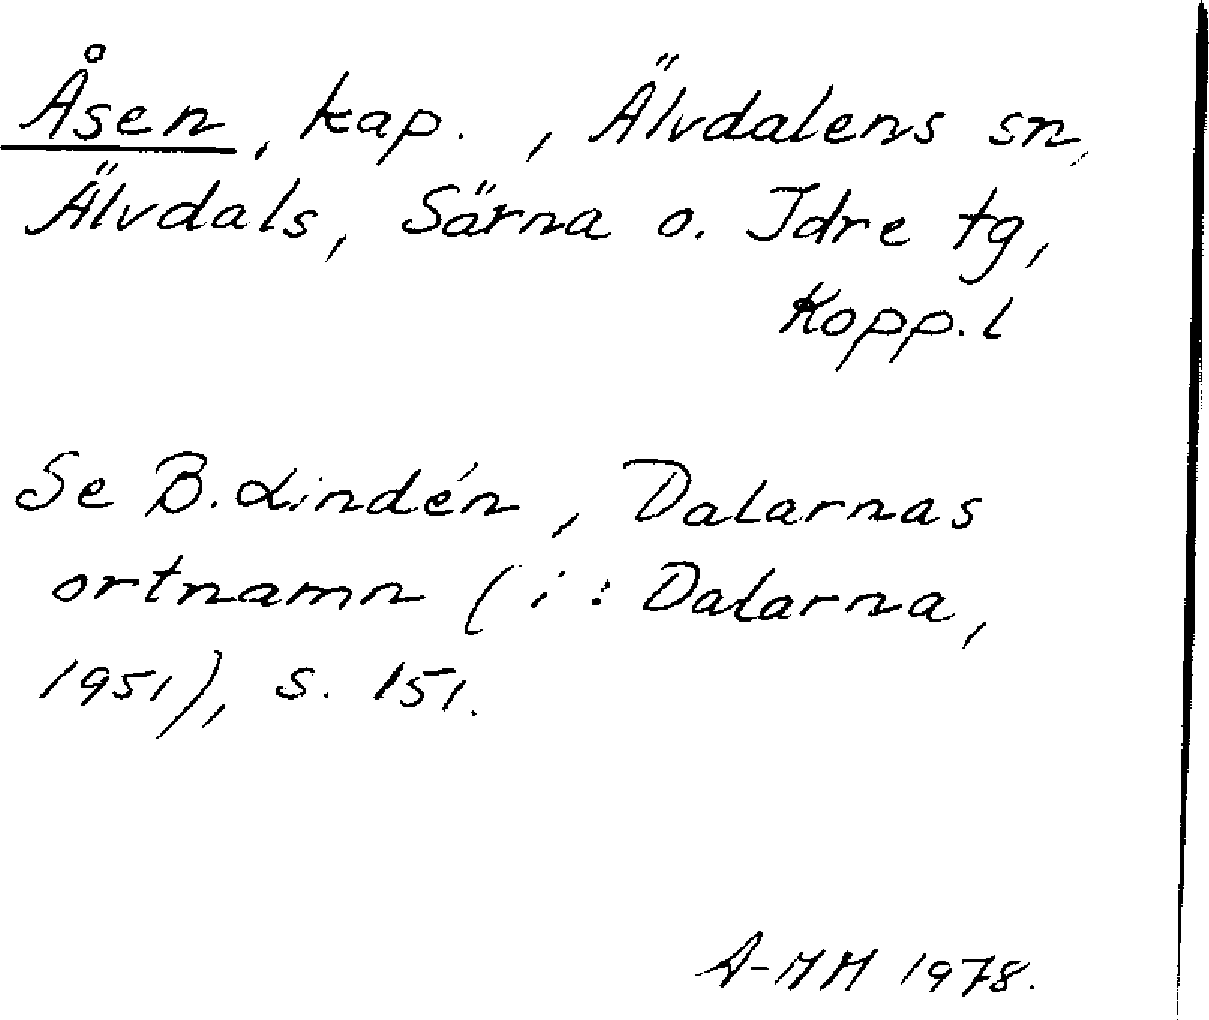 Åsen, kap., Älvdalens sn,
Älvdals, Särna o. Idre tg,
Kopp. l
Se B. Lindén, Dalarnas
ortnamn (i: Dalarna,
1951), s. 151.
A-MM 1978.